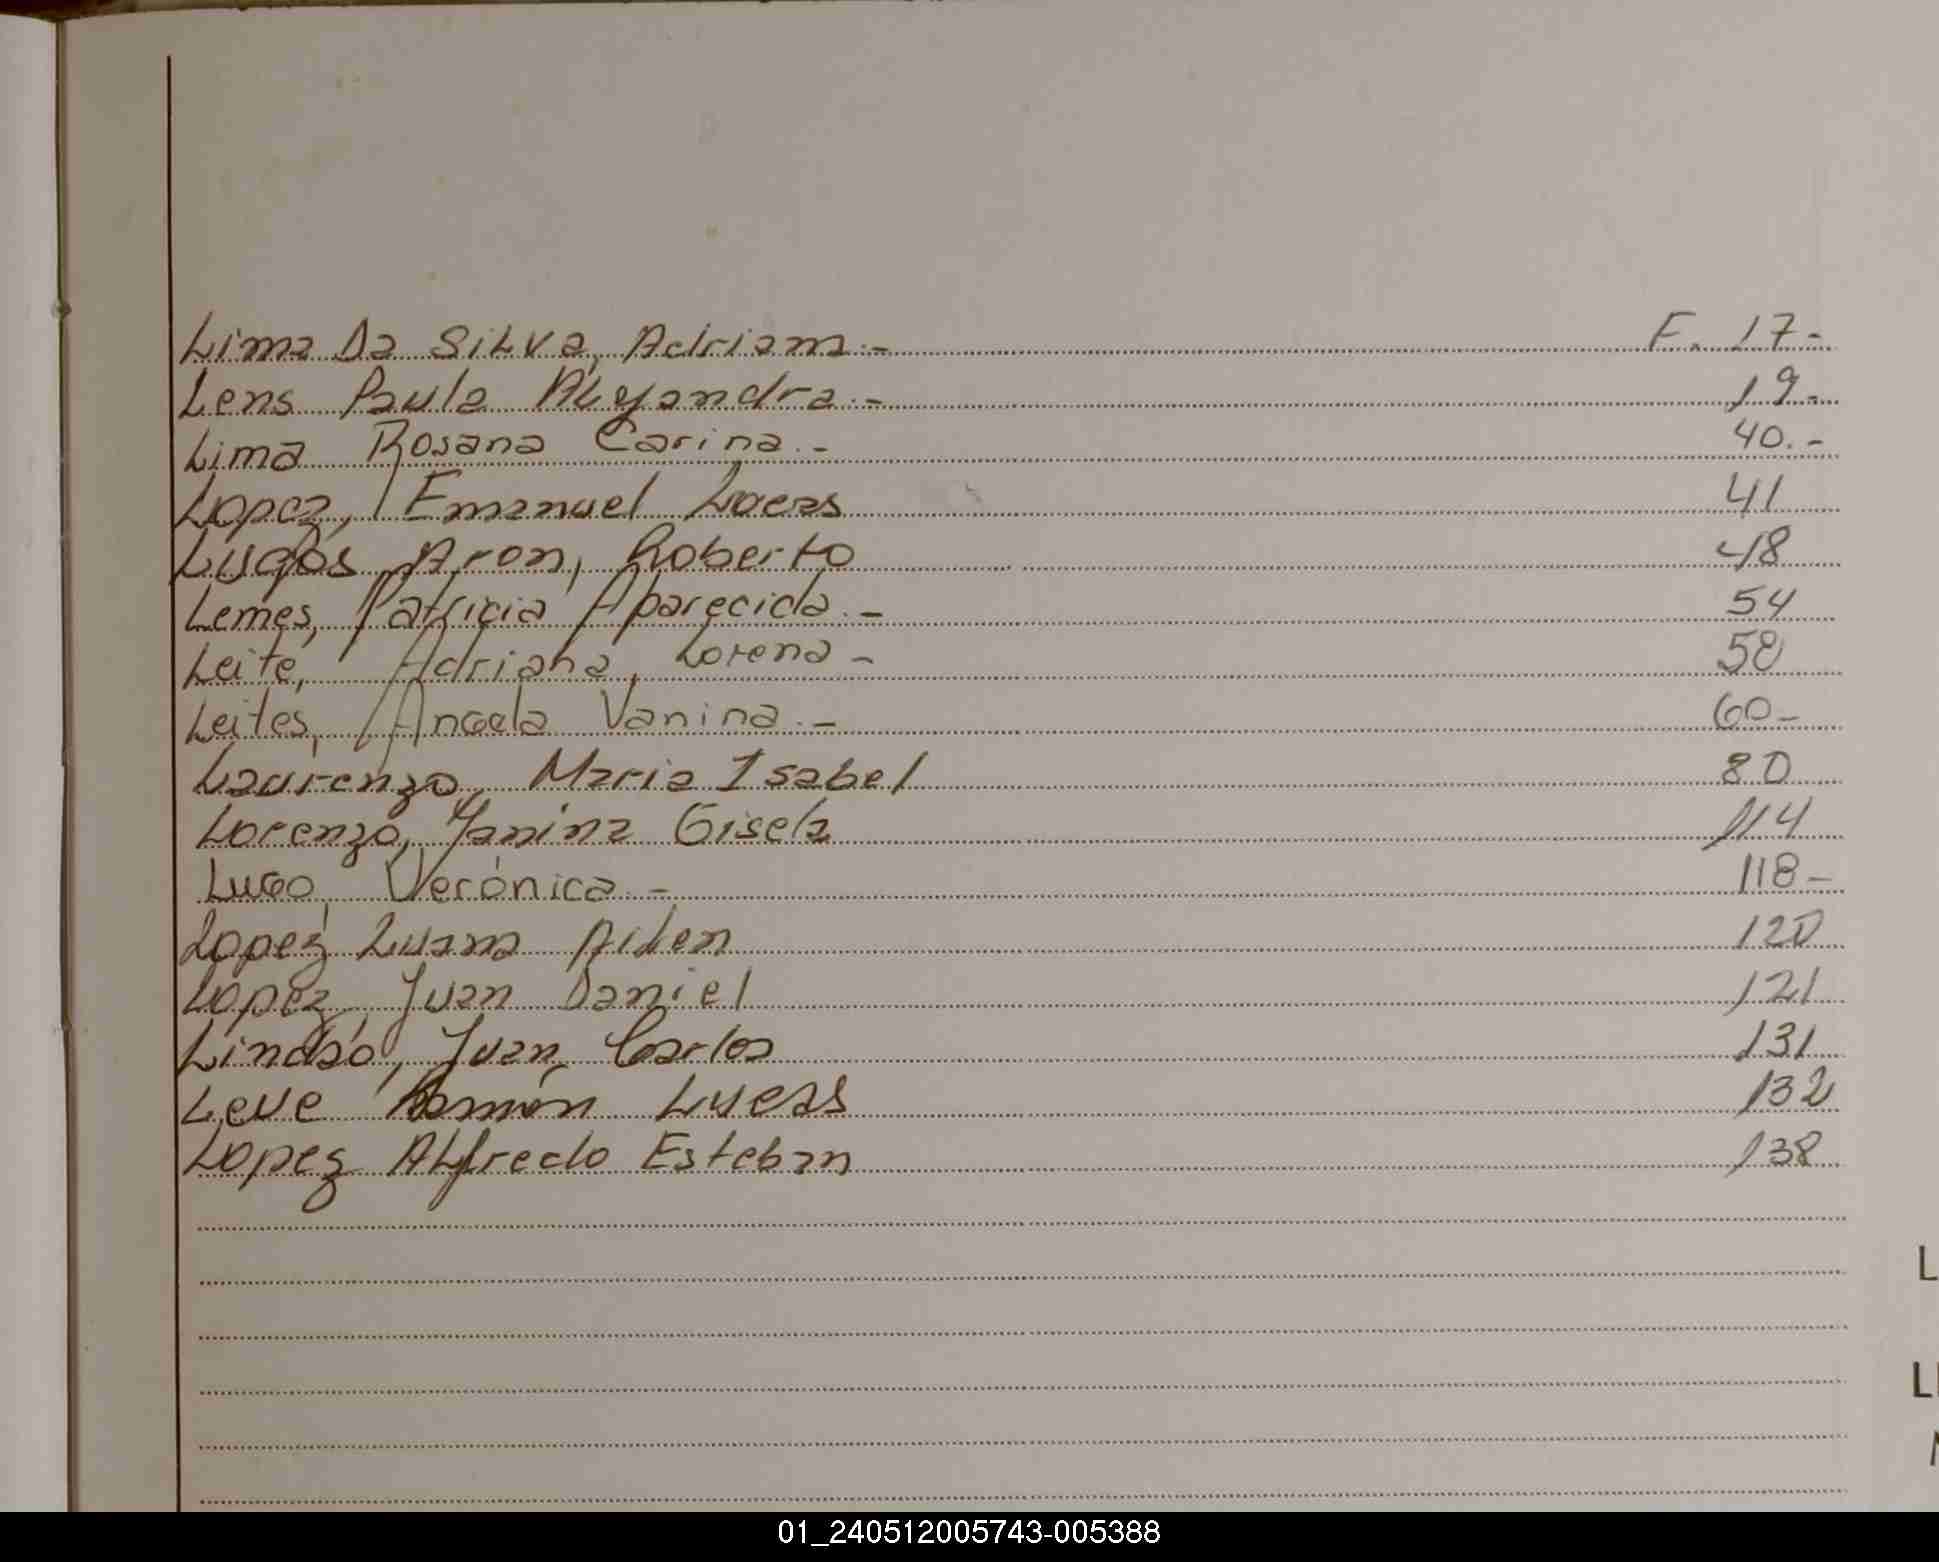 Lima Da Silva, Adriam.- F. 17-
Lens Paula Alejandra.- 19.
Lima Rosana Carina.- 40.-
Lopez, Emanuel Lucas 41
Lugos Aron, Roberto 48
Lemes, Patricia Aparecida.- 54
Leite, Adriana, Lorena- 58
Leites, Angela Vanina.- 60-
Laurenzo, Maria Isabel 80
Lorenzo, Yanina Gisela 114
Lugo, Verónica.- 118-
Lopez Luana Ailen 120
Lopez, Juan Daniel 121
Lindao, Juan Carlos 131
Leue Ramón Lucas 132
Lopez Alfredo Esteban 138
L
L
01_240512005743-005388